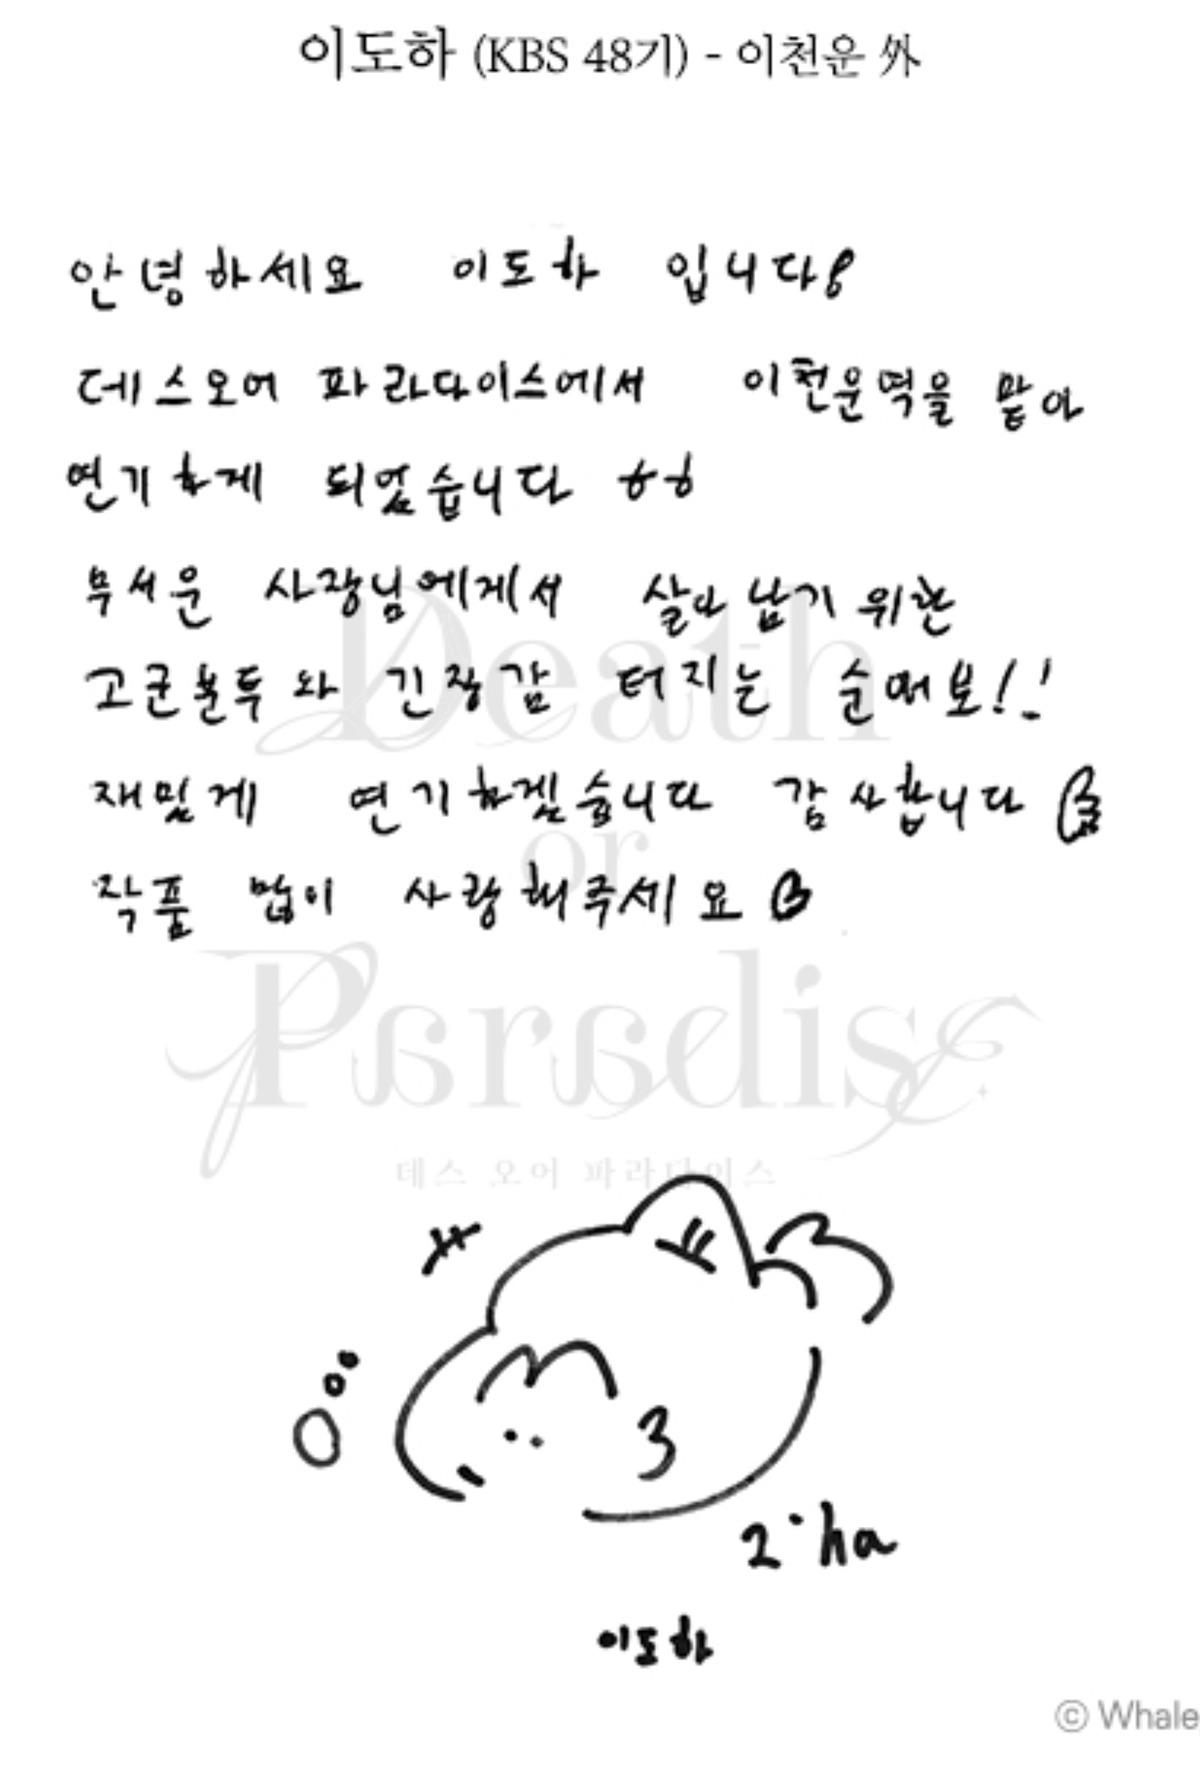 이도하 (KBS 48기) - 이천운 外
안녕하세요 이도하 입니다!
데스오어 파라다이스에서 이천운역을 맡아
연기하게 되었습니다 ㅎㅎ
무서운 사장님에게서 살아남기 위한
고군분투와 긴장감 터지는 순애보!!
재밌게 연기하겠습니다 감사합니다
작품 많이 사랑해주세요
Death
or
Paradise
데스 오어 파라다이스
2·ha
이도하
© Whale